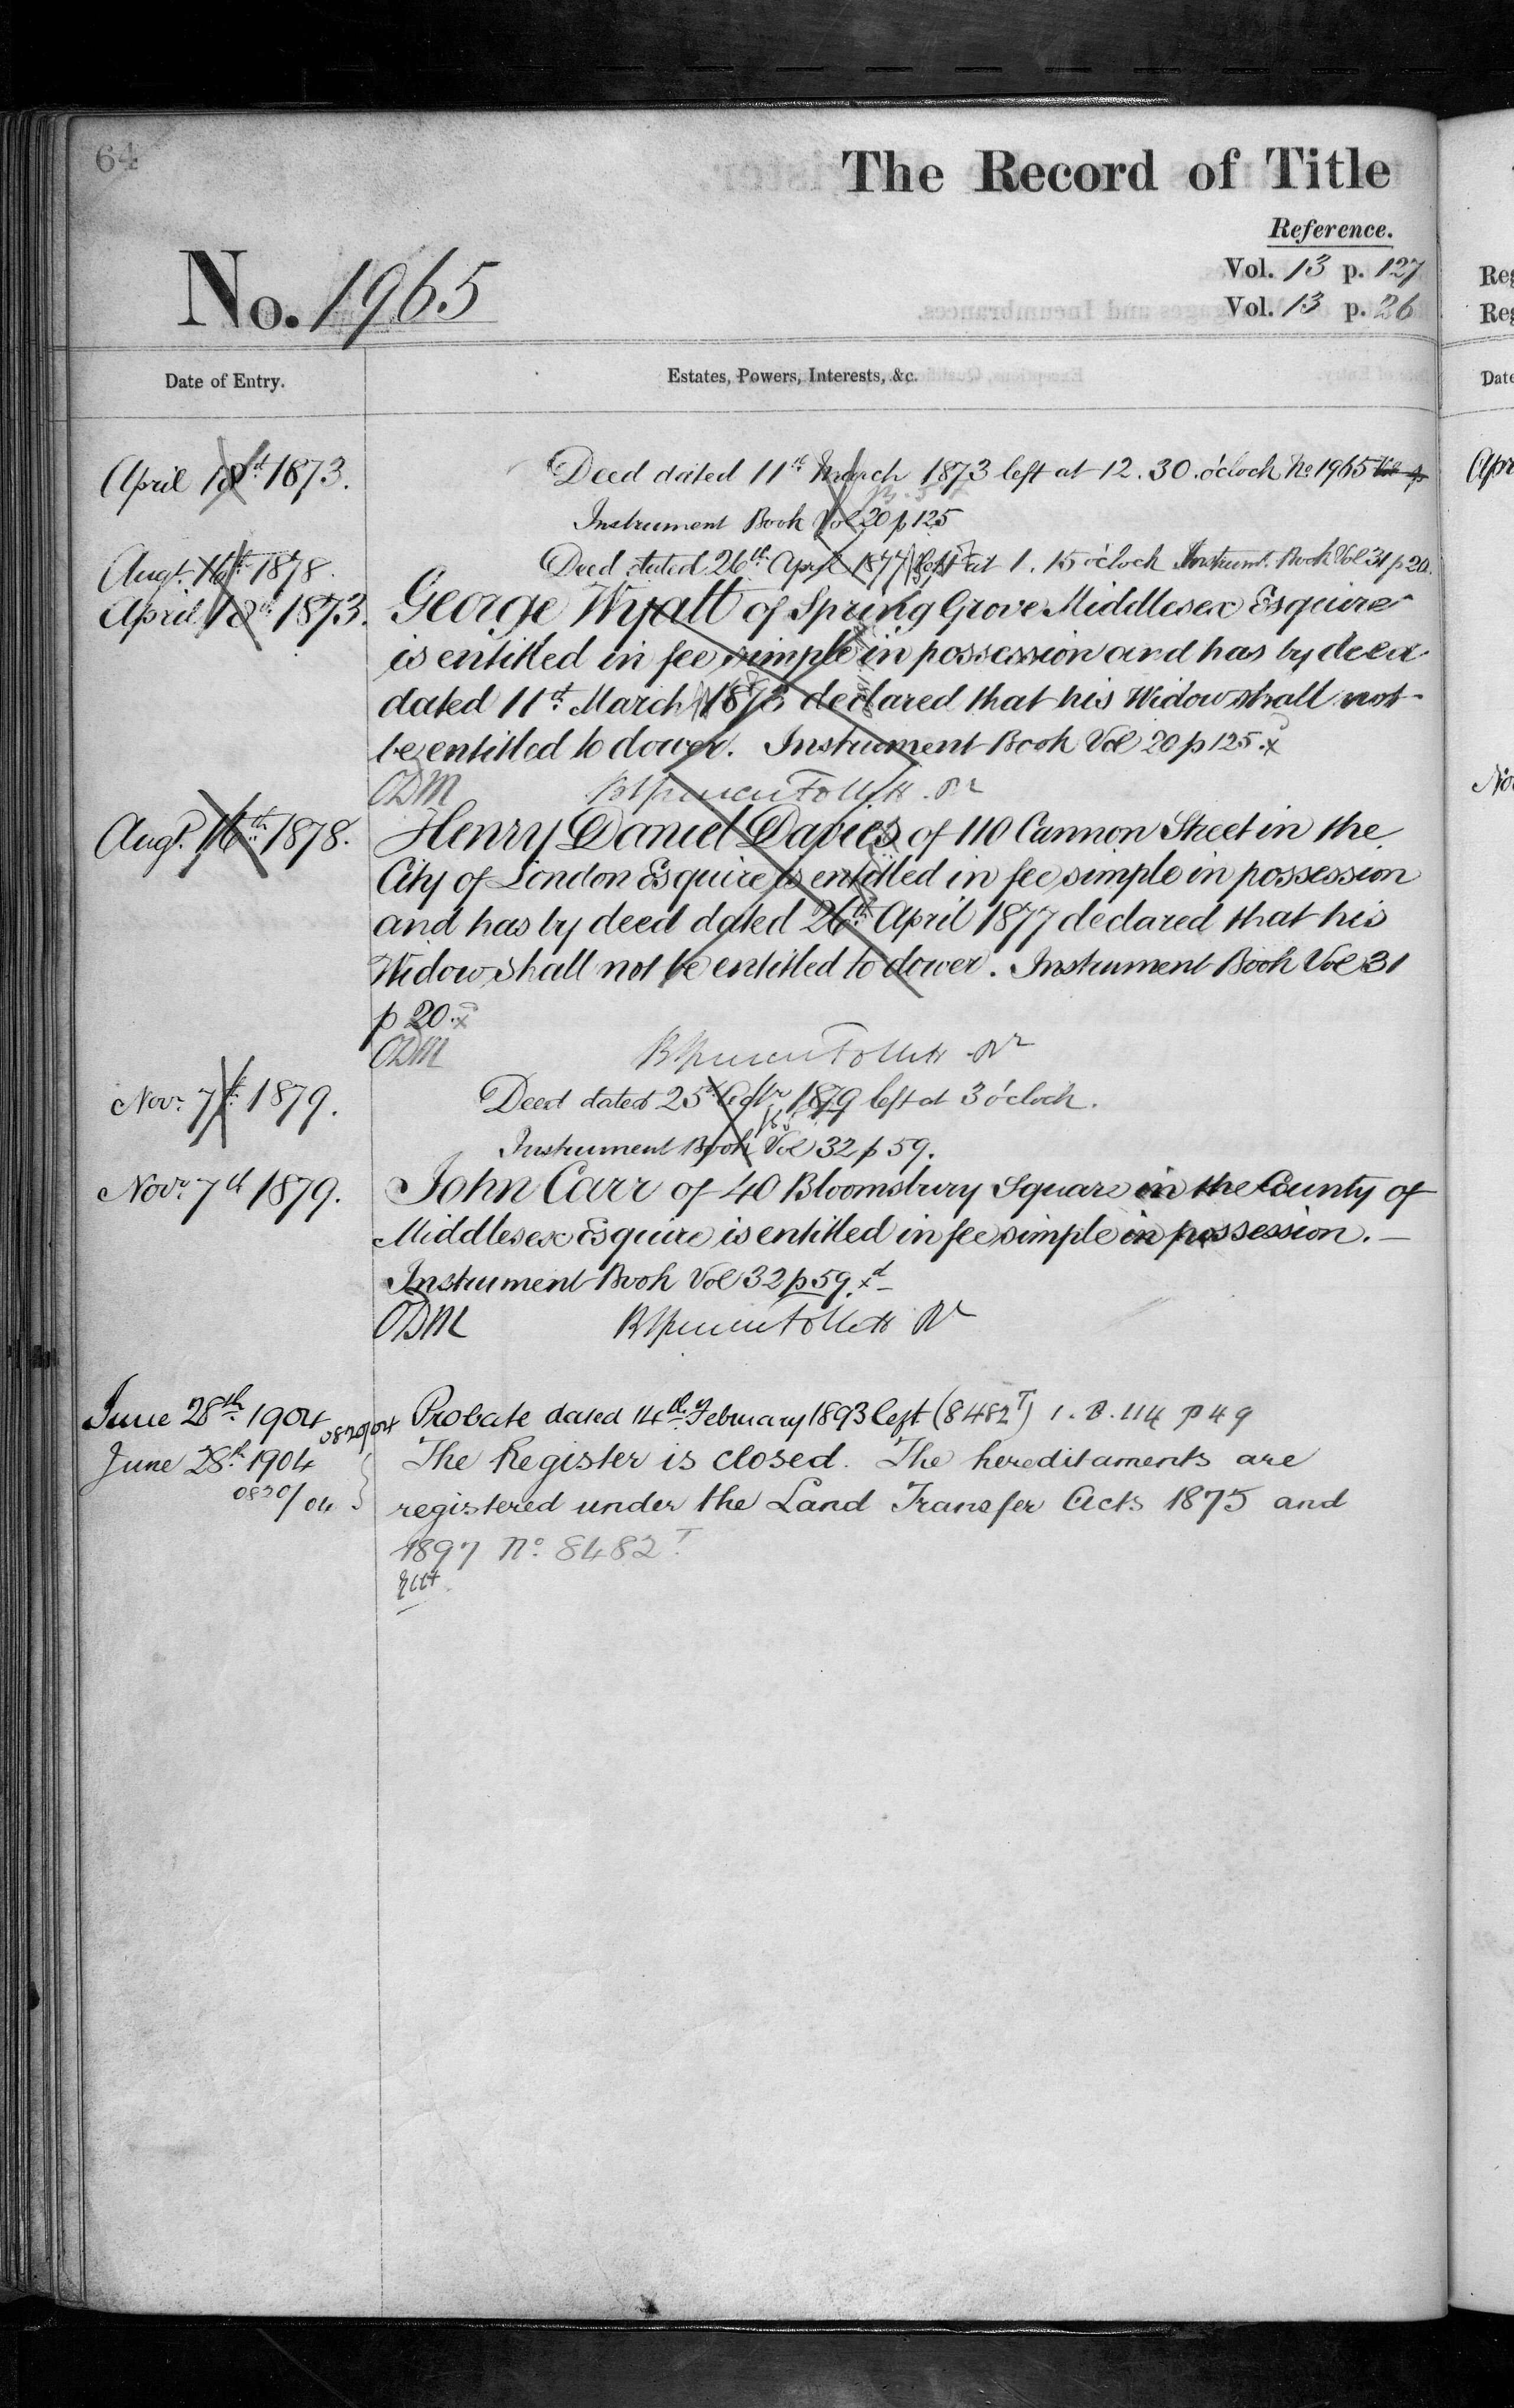 64
The Record of Title
Reference.
No. 1965
Vol. 13 p. 127
Vol. 13 p. 26
Date of Entry.
Estates, Powers, Interests, &c.
April 18th 1873. Deed dated 11th March 1873 left at 12.30. o'clock No 1965 Vol p
Instrument Book Vol 20 p 125
Augt. 16th 1878. Deed dated 26th April 1877 left at 1.15 o'clock Instrumt. Book Vol 31 p 20.
April 18th 1873. George Wyatt of Spring Grove Middlesex Esquire
is entitled in fee simple in possession and has by deed
dated 11th March 1873 declared that his Widow shall not
be entitled to dower. Instrument Book Vol 20 p 125.
ODM
Augt. 16th 1878. Henry Daniel Davies of 110 Cannon Street in the
City of London Esquire is entitled in fee simple in possession
and has by deed dated 26th April 1877 declared that his
Widow shall not be entitled to dower. Instrument Book Vol 31
p 20.
ODM
Novr. 7th 1879. Deed dated 25th Octr 1879 left at 3 o'clock.
Instrument Book Vol 32 p 59.
Novr. 7th 1879. John Carr of 40 Bloomsbury Square in the County of
Middlesex Esquire is entitled in fee simple in possession. —
Instrument Book Vol 32 p 59.
ODM
June 28th 1904 0820/04 Probate dated 14th February 1893 left (8482T) 1. B. 114 p 49
June 28th 1904 The Register is closed. The hereditaments are
0820/04 registered under the Land Transfer Acts 1875 and
1897 No. 8482T.